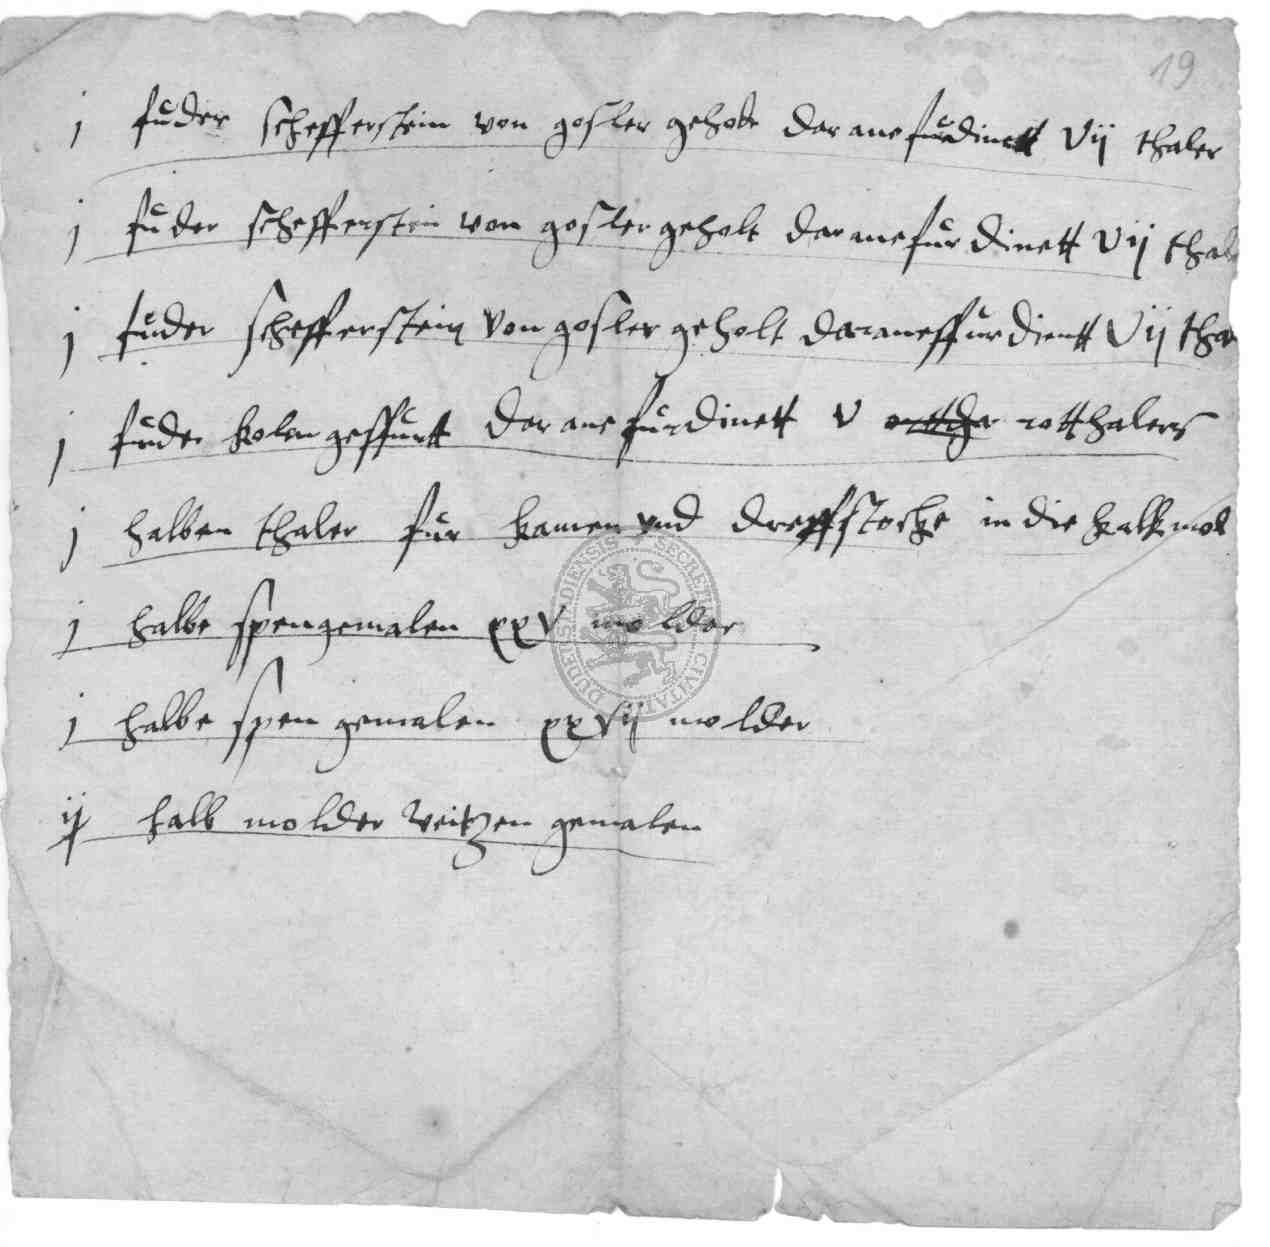 19
j fuder schefferstein von gosler geholt dar ane furdinett vij thaler
j fuder schefferstein von gosler geholt dar ane fur dinett vij thal
j fuder schefferstein von gosler geholt dar ane ffur dientt vij tha
j fuder kolen geffurtt dar ane furdinett v ortthalers
j halben thaler fur kamen vnd dreffstocke in die kalkmol
j halbe spen gemalen xxv molder
j halbe spen gemalen xxvij molder
ij halb molder weitzen gemalen
SECRETUM CIVITATIS DUDERSTADIENSIS